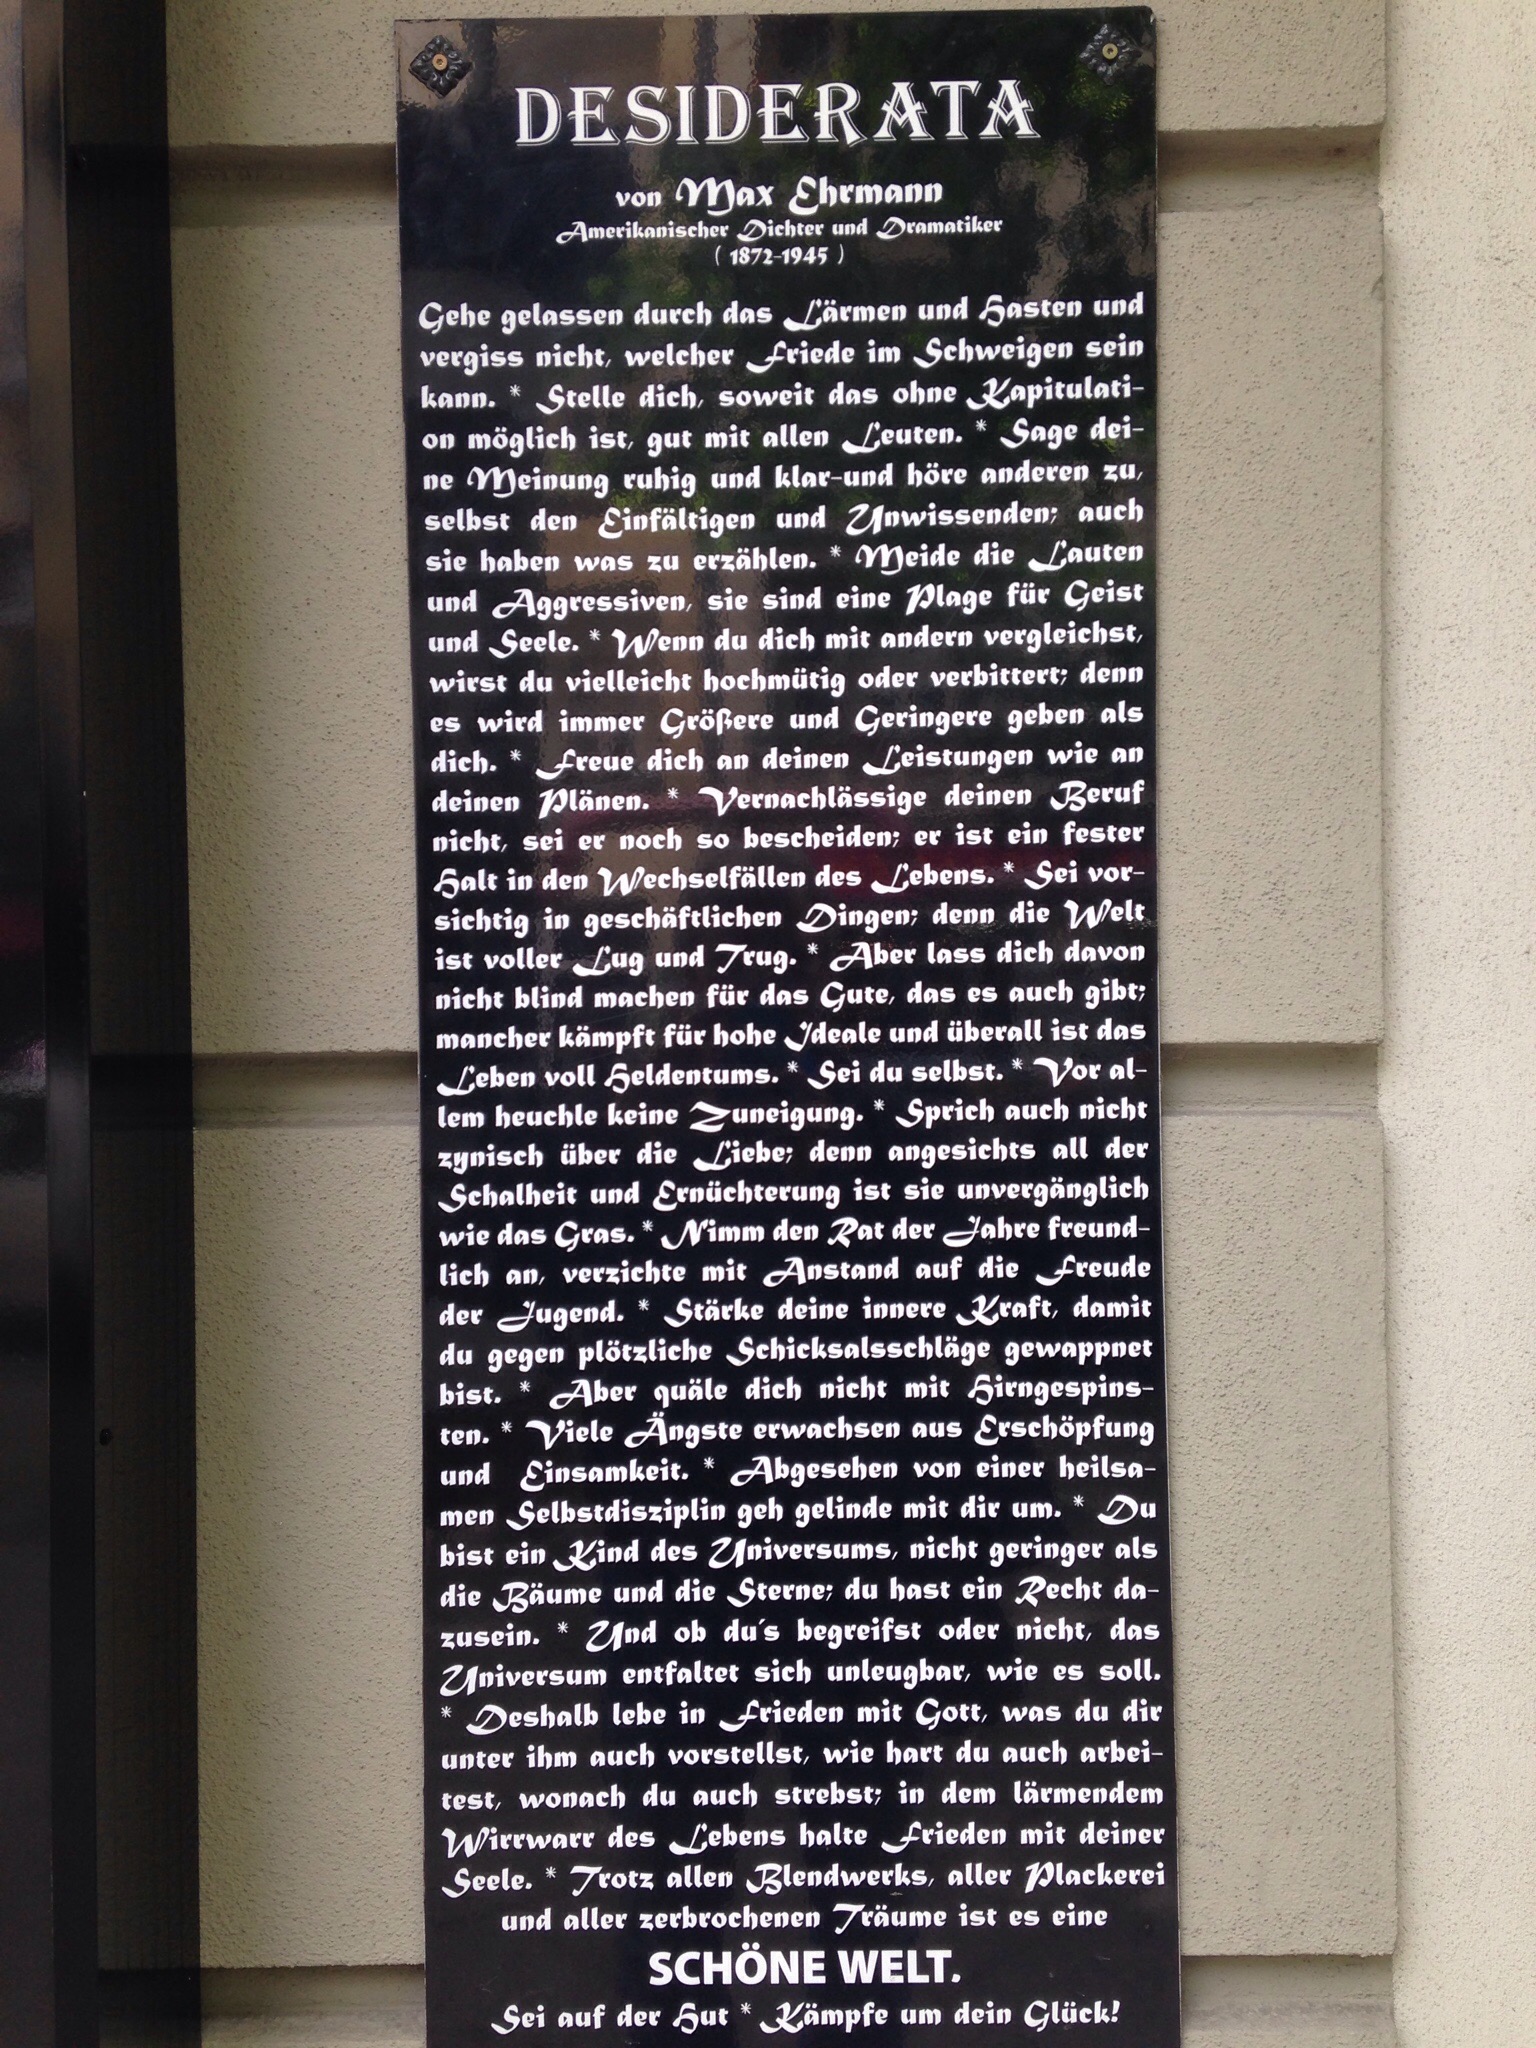 DESIDERATA
von Max Ehrmann
Amerikanischer Dichter und Dramatiker
( 1872-1945 )
Gehe gelassen durch das Lärmen und Hasten und
vergiss nicht, welcher Friede im Schweigen sein
kann. * Stelle dich, soweit das ohne Kapitulati-
on möglich ist, gut mit allen Leuten. * Sage dei-
ne Meinung ruhig und klar-und höre anderen zu,
selbst den Einfältigen und Unwissenden; auch
sie haben was zu erzählen. * Meide die Lauten
und Aggressiven, sie sind eine Plage für Geist
und Seele. * Wenn du dich mit andern vergleichst,
wirst du vielleicht hochmütig oder verbittert; denn
es wird immer Größere und Geringere geben als
dich. * Freue dich an deinen Leistungen wie an
deinen Plänen. * Vernachlässige deinen Beruf
nicht, sei er noch so bescheiden; er ist ein fester
Halt in den Wechselfällen des Lebens. * Sei vor-
sichtig in geschäftlichen Dingen; denn die Welt
ist voller Lug und Trug. * Aber lass dich davon
nicht blind machen für das Gute, das es auch gibt;
mancher kämpft für hohe Ideale und überall ist das
Leben voll Heldentums. * Sei du selbst. * Vor al-
lem heuchle keine Zuneigung. * Sprich auch nicht
zynisch über die Liebe; denn angesichts all der
Schalheit und Ernüchterung ist sie unvergänglich
wie das Gras. * Nimm den Rat der Jahre freund-
lich an, verzichte mit Anstand auf die Freude
der Jugend. * Stärke deine innere Kraft, damit
du gegen plötzliche Schicksalsschläge gewappnet
bist. * Aber quäle dich nicht mit Hirngespins-
ten. * Viele Ängste erwachsen aus Erschöpfung
und Einsamkeit. * Abgesehen von einer heilsa-
men Selbstdisziplin geh gelinde mit dir um. * Du
bist ein Kind des Universums, nicht geringer als
die Bäume und die Sterne; du hast ein Recht da-
zusein. * Und ob du´s begreifst oder nicht, das
Universum entfaltet sich unleugbar, wie es soll.
* Deshalb lebe in Frieden mit Gott, was du dir
unter ihm auch vorstellst, wie hart du auch arbei-
test, wonach du auch strebst; in dem lärmendem
Wirrwarr des Lebens halte Frieden mit deiner
Seele. * Trotz allen Blendwerks, aller Plackerei
und aller zerbrochenen Träume ist es eine
SCHÖNE WELT.
Sei auf der Hut * Kämpfe um dein Glück!